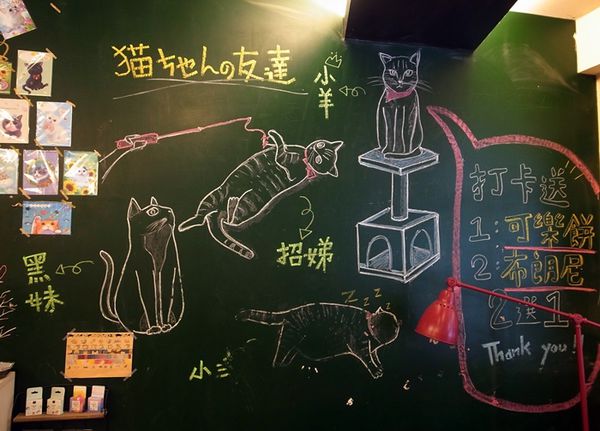 猫ちゃんの友達
小羊
招娣
黑妹
小三
Z Z Z Z
打卡送
1：可樂餅
2：布朗尼
2選1
Thank you!